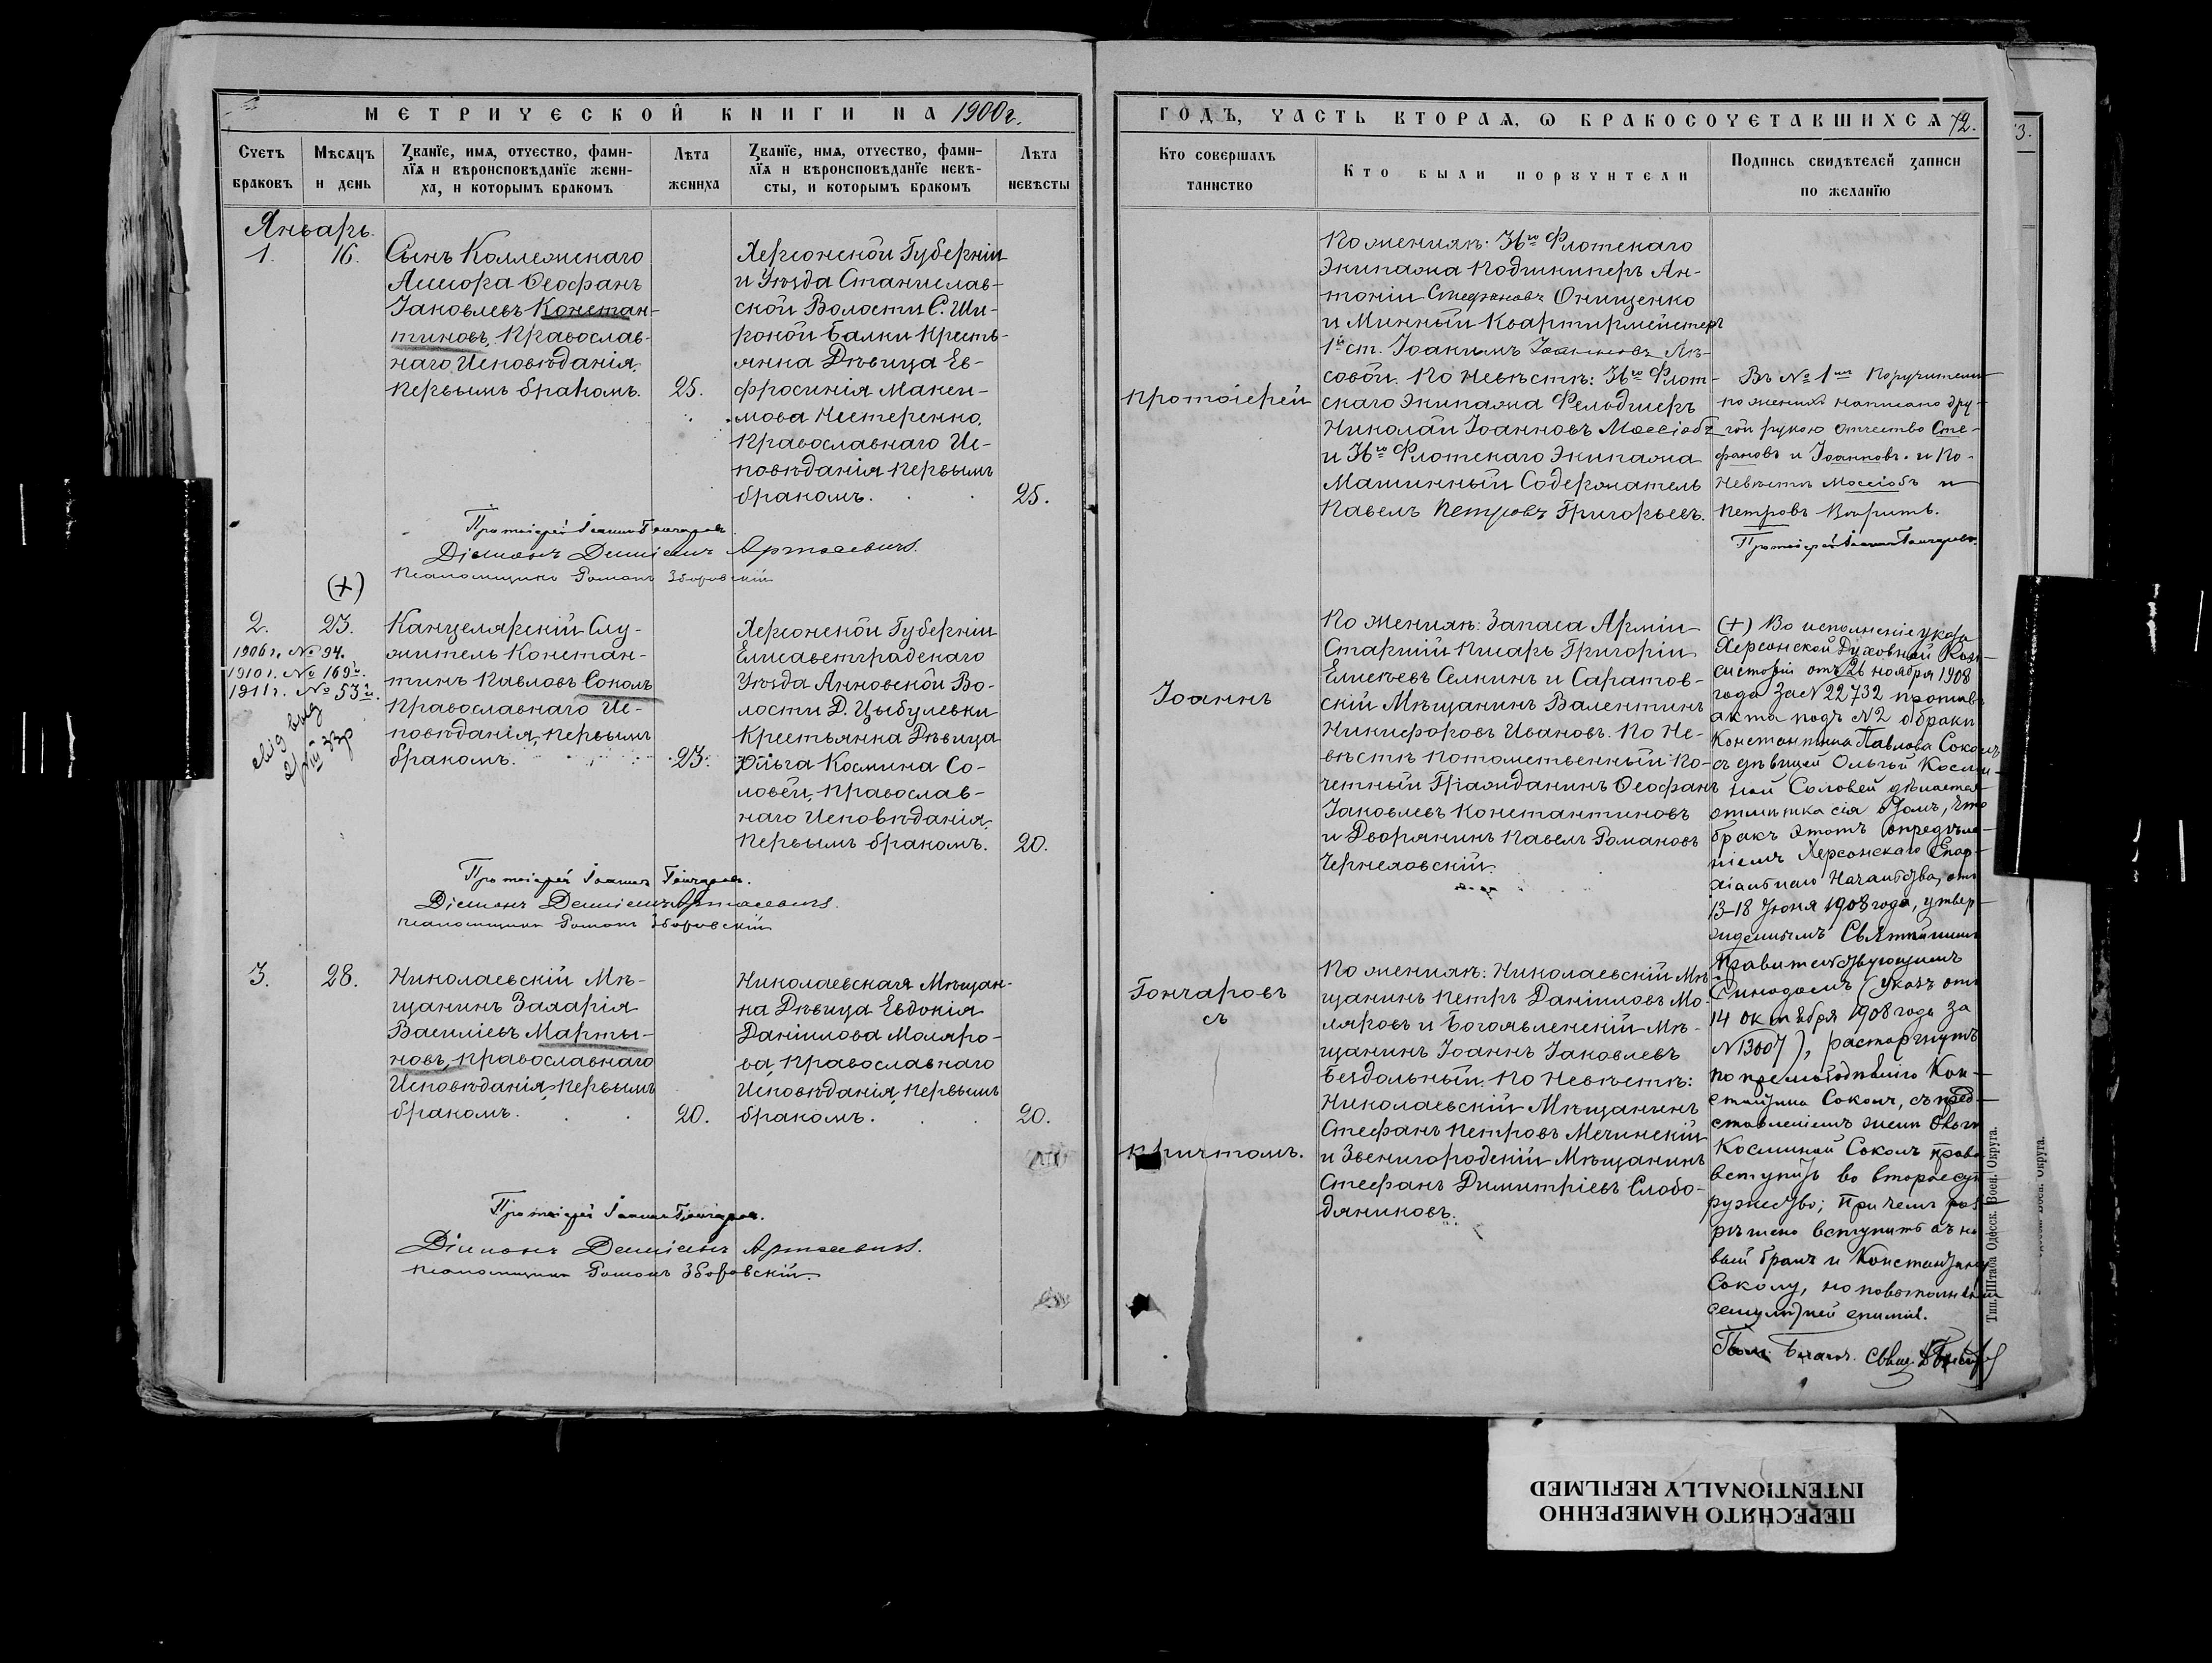 МЕТРИЧЕСКОЙ КНИГИ НА 1900 г.
Счетъ браковъ
Мѣсяцъ и день
Званїе, имя, отчество, фами-
лїя и вѣроисповѣданїе жени-
ха, и которымъ бракомъ
Лѣта жениха
Званїе, имя, отчество, фами-
лїя и вѣроисповѣданїе невѣ-
сты, и которымъ бракомъ
Лѣта невѣсты
Январь.
1. 16.
Сынъ Коллежскаго
Ассесора Ѳеофанъ
Іаковлевъ Констан-
тиновъ, Православ-
наго Исповѣданія,
первымъ бракомъ. 25.
Херсонской Губерніи
и Уѣзда Станислав-
ской Волости С. Ши-
рокой Балки Кресть-
янка Дѣвица Ев-
фросинія Макси-
мова Нестеренко,
Православнаго Ис-
повѣданія первымъ
бракомъ. 25.
Протоіерей Іоаннъ Гончаровъ
Діаконъ Даміанъ Артасевичъ.
Псаломщикъ Романъ Зборовскій
(+)
2. 23.
1906 г. № 94.
1910 г. № 169й.
1911 г. № 53й.
Канцелярскій Слу-
житель Констан-
тинъ Павловъ Соколъ
Православнаго Ис-
повѣданія, первымъ
бракомъ. 23.
Херсонской Губерніи
Елисаветградскаго
Уѣзда Анновской Во-
лости Д. Цыбулевки
Крестьянка Дѣвица
Ольга Космина Со-
ловей, Православ-
наго Исповѣданія,
первымъ бракомъ. 20.
Протоіерей Іоаннъ Гончаровъ.
Діаконъ Даміанъ Артасевичъ.
Псаломщикъ Романъ Зборовскій
3. 28.
Николаевскій Мѣ-
щанинъ Захарія
Василіевъ Марты-
новъ, Православнаго
Исповѣданія, первымъ
бракомъ. 20.
Николаевская Мѣщан-
ка Дѣвица Евдокія
Даніилова Моляро-
ва, Православнаго
Исповѣданія, первымъ
бракомъ. 20.
Протоіерей Іоаннъ Гончаровъ.
Діаконъ Даміанъ Артасевичъ.
Псаломщикъ Романъ Зборовскій.
ГОДЪ, ЧАСТЬ ВТОРАЯ, Ѡ БРАКОСОЧЕТАВШИХСЯ 72.
3.
Кто совершалъ таинство
Кто были поручители
Подпись свидѣтелей записи по желанїю
Протоіерей
Іоаннъ
Гончаровъ
съ
причтомъ.
По женихѣ: 36го Флотскаго
Экипажа Подшкиперъ Ан-
тоній Стефановъ Онищенко
и Минный Квартирмейстеръ
1й ст. Іоакимъ Іоанновъ Лѣ-
совой. По Невѣстѣ: 36го Флот-
скаго Экипажа Фельдшеръ
Николай Іоанновъ Моссіобъ
и 36го Флотскаго Экипажа
Машинный Содержатель
Павелъ Петровъ Григорьевъ.
Въ № 1мъ Поручители
по женихѣ написано дру-
гой рукою отчество Сте-
фановъ и Іоанновъ. и По-
Невѣстѣ Моссіобъ и
Петровъ Вѣрить.
Протоіерей Іоаннъ Гончаровъ.
По женихѣ: Запаса Арміи
Старшій Писарь Григорій
Елисѣевъ Селнинъ и Саратов-
скій Мѣщанинъ Валентинъ
Никифоровъ Ивановъ. По Не-
вѣстѣ Потомственный По-
четный Гражданинъ Ѳеофанъ
Іаковлевъ Константиновъ
и Дворянинъ Павелъ Романовъ
Черняховскій.
(+) Во исполненіе указа
Херсонской Духовной Кон-
систоріи отъ 26 ноября 1908
года за № 22732 противъ
акта подъ № 2 о бракѣ
Константина Павлова Соколъ
съ дѣвицей Ольгой Косми-
ной Соловей дѣлается
отмѣтка сія о томъ, что
бракъ этотъ опредѣле-
ніемъ Херсонскаго Епар-
хіальнаго Начальства, отъ
13-18 Іюня 1908 года, утвер-
жденнымъ Святѣйшимъ
Правительствующимъ
Синодомъ (указъ отъ
14 октября 1908 года за
№ 13007), расторгнутъ
по прелюбодѣянію Кон-
стантина Сокола, съ пред-
ставленіемъ женѣ Ольгѣ
Косминой Соколъ право
вступить во второе суп-
ружество; причемъ раз-
рѣшено вступить въ но-
вый бракъ и Константину
Соколу, но по выполненіи
семилѣтней епитиміи.
По женихѣ: Николаевскій Мѣ-
щанинъ Петръ Данииловъ Мо-
ляровъ и Богоявленскій Мѣ-
щанинъ Іоаннъ Іаковлевъ
Бездольный. По Невѣстѣ:
Николаевскій Мѣщанинъ
Стефанъ Петровъ Мечинскій
и Звенигородскій Мѣщанинъ
Стефанъ Димитріевъ Слобо-
дяниковъ.
Тип. Штаба Одесск. Воен. Округа.
ПЕРЕСНЯТО НАМЕРЕННО
INTENTIONALLY REFILMED